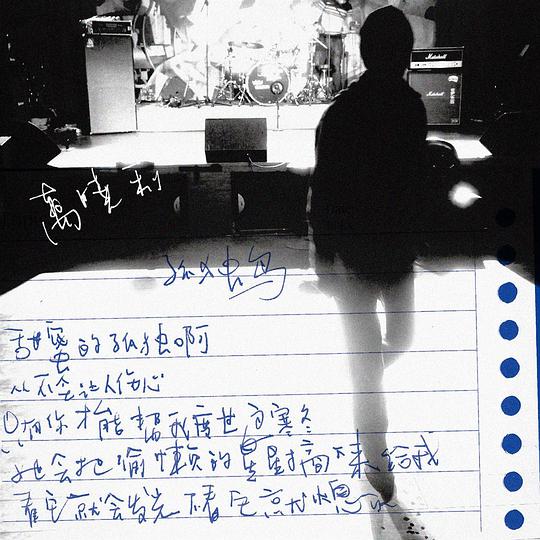 Marshall
Marshall
萬曉利
孤独鸟
甜蜜的孤独啊
从不会让人伤心
只有你才能帮我度过寒冬
她会把偷懒的星星摘下来给我
看它就会发光 不看它就熄